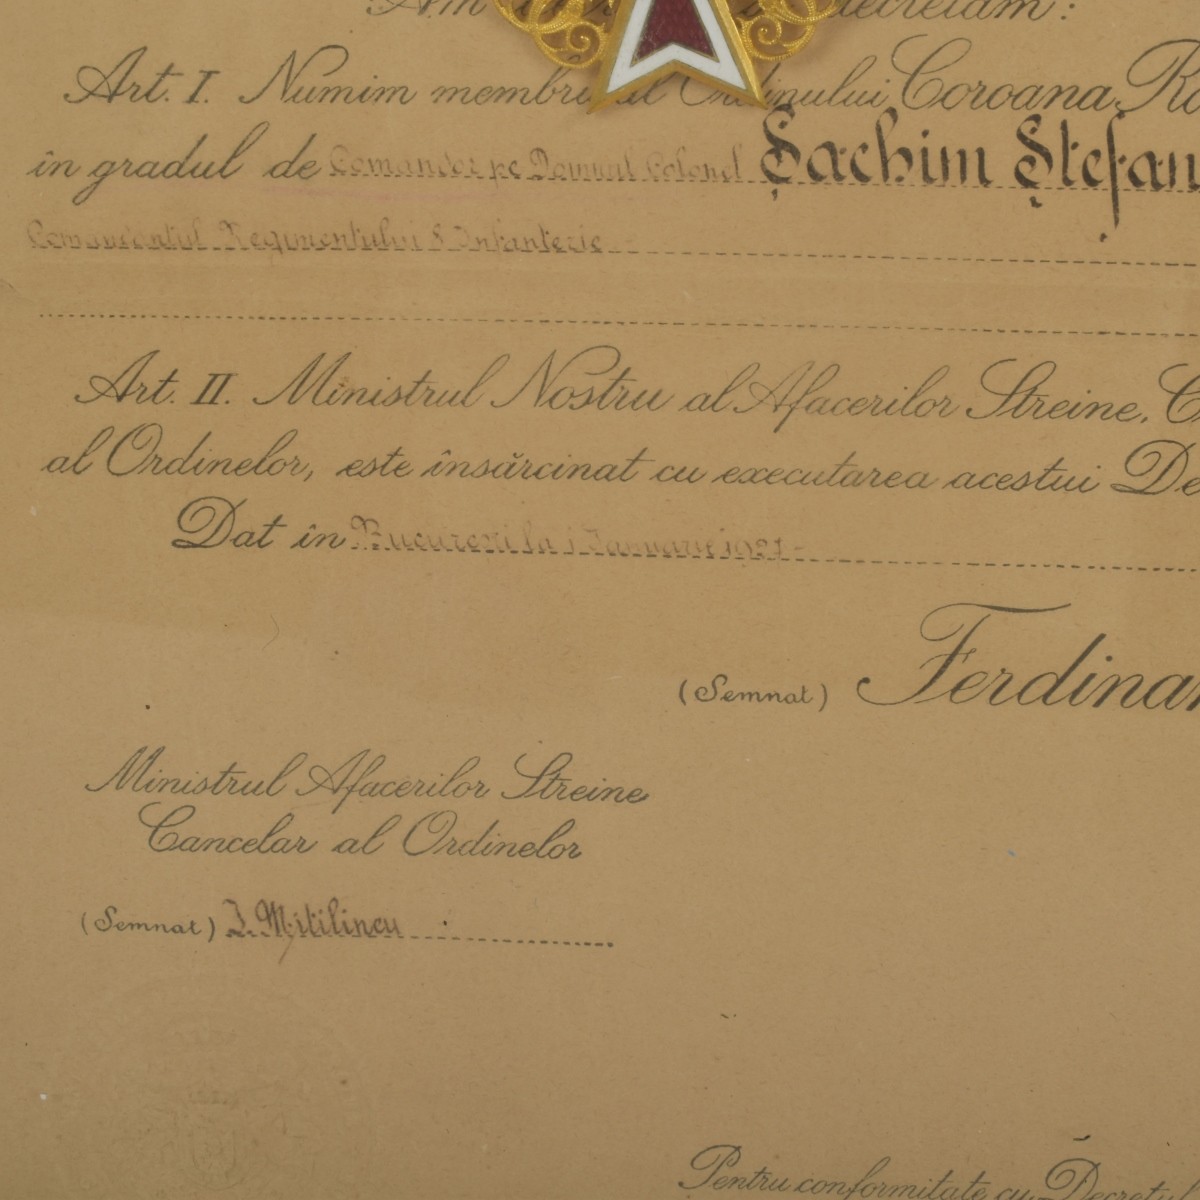 Am decretam:
Art. I. Numim membri al Ordinului Coroana Ro
în gradul de Comandor pe Domnul Colonel Șachim Ștefan
Comandantul Regimentului 8 Infanterie -
Art. II. Ministrul Nostru al Afacerilor Streine, C
al Ordinelor, este însărcinat cu executarea acestui De
Dat în București la 1 Ianuarie 1927 -
(Semnat) Ferdinan
Ministrul Afacerilor Streine
Cancelar al Ordinelor
(Semnat) I. Mitilineu
Pentru conformitate cu Decretul